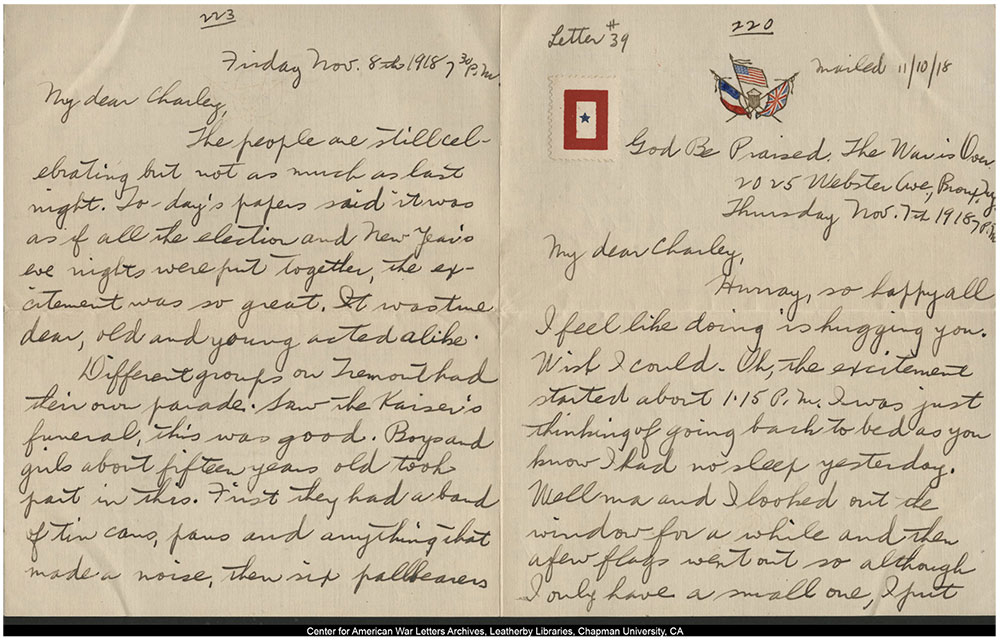 223
Friday Nov. 8th 1918 7 30 P.M
My dear Charley,
The people are still cel-
ebrating but not as much as last
night. To-day's papers said it was
as if all the election and New Year's
eve nights were put together, the ex-
citement was so great. It was true
dear, old and young acted alike.
Different groups on Tremont had
their own parade. Saw the Kaiser's
funeral, this was good. Boys and
girls about fifteen years old took
part in this. First they had a band
of tin cans, pans and anything that
made a noise, then six pallbearers
220
Letter #39
mailed 11/10/18
God Be Praised. The War is Over.
2025 Webster Ave., Bronx, Ny.
Thursday Nov. 7th 1918 7 P.M
My dear Charley,
Hurray, so happy all
I feel like doing is hugging you.
Wish I could. Oh, the excitement
started about 1.15 P.M. I was just
thinking of going back to bed as you
know I had no sleep yesterday.
Well ma and I looked out the
window for a while and then
a few flags went out so although
I only have a small one, I put
Center for American War Letters Archives, Leatherby Libraries, Chapman University, CA